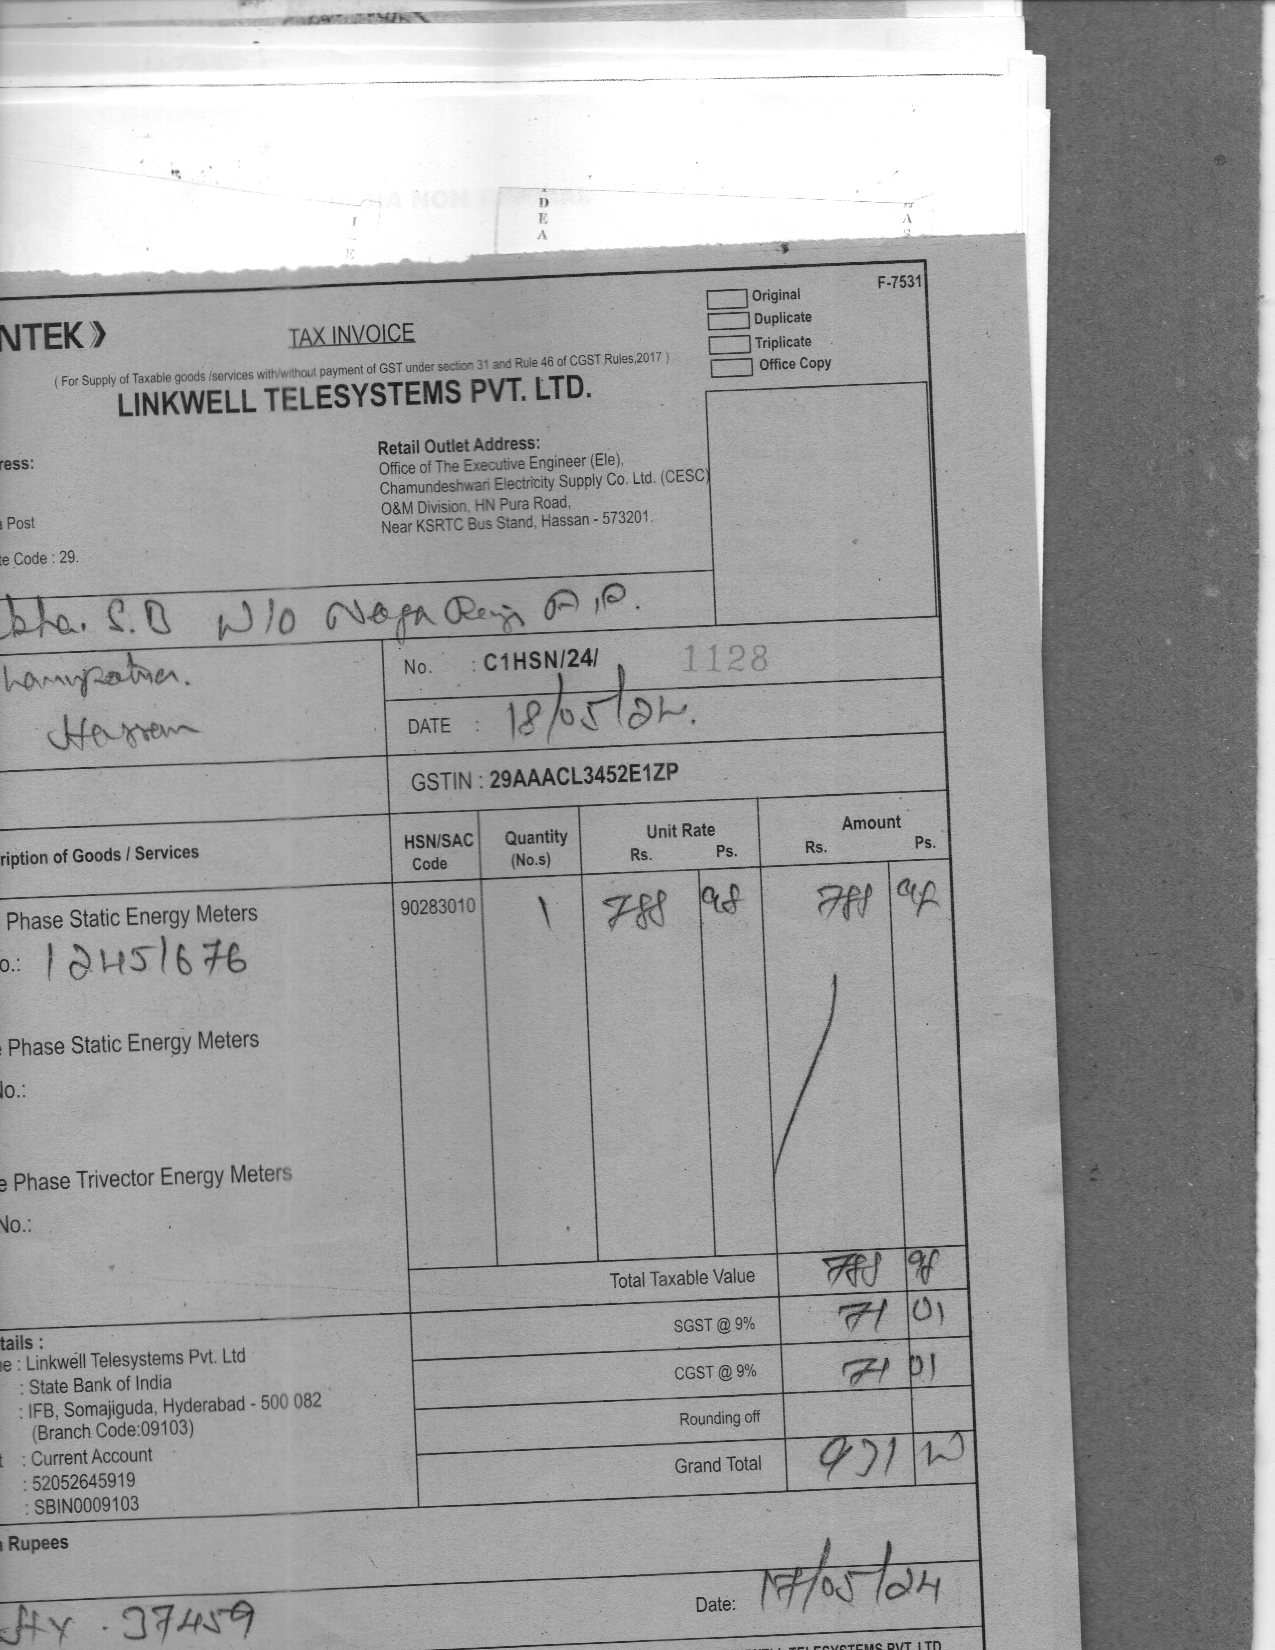 D
E
A
F-7531
Original
Duplicate
Triplicate
Office Copy
NTEK
TAX INVOICE
( For Supply of Taxable goods /services with/without payment of GST under section 31 and Rule 46 of CGST Rules,2017 )
LINKWELL TELESYSTEMS PVT. LTD.
ress:
Post
te Code : 29.
Retail Outlet Address:
Office of The Executive Engineer (Ele),
Chamundeshwari Electricity Supply Co. Ltd. (CESC)
O&M Division, HN Pura Road,
Near KSRTC Bus Stand, Hassan - 573201.
S.B W/o Naga
Hassan
No. : C1HSN/24/ 1128
DATE : 18/05/24.
GSTIN : 29AAACL3452E1ZP
ription of Goods / Services HSN/SAC Code Quantity (No.s) Unit Rate Rs. Ps. Amount Rs. Ps.
Phase Static Energy Meters 90283010 1 788 98 788 98
o.: 12451676
Phase Static Energy Meters
No.:
e Phase Trivector Energy Meters
No.:
Total Taxable Value 788 98
SGST @ 9% 71 01
CGST @ 9% 71 01
Rounding off
Grand Total 931
tails :
e : Linkwell Telesystems Pvt. Ltd
: State Bank of India
: IFB, Somajiguda, Hyderabad - 500 082
(Branch Code:09103)
t : Current Account
: 52052645919
: SBIN0009103
Rupees
37459
Date: 17/05/24
TELESYSTEMS PVT. LTD